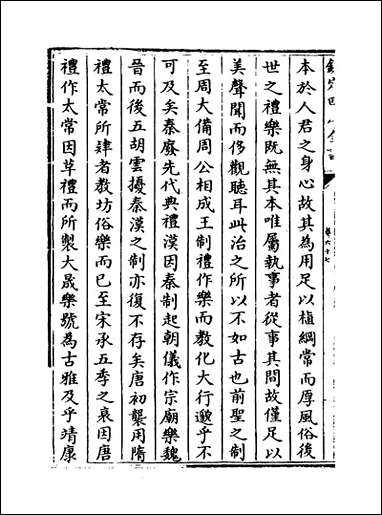 欽定四庫全書
卷六十七
本於人君之身心故其為用足以植綱常而厚風俗後
世之禮樂既無其本唯屬執事者從事其間故僅足以
美聲聞而侈觀聽耳此治之所以不如古也前聖之制
至周大備周公相成王制禮作樂而教化大行邈乎不
可及矣秦廢先代典禮漢因秦制起朝儀作宗廟樂魏
晉而後五胡雲擾秦漢之制亦復不存矣唐初襲用隋
禮太常所肄者教坊俗樂而已至宋承五季之衰因唐
禮作太常因革禮而所製大晟樂號為古雅及乎靖康